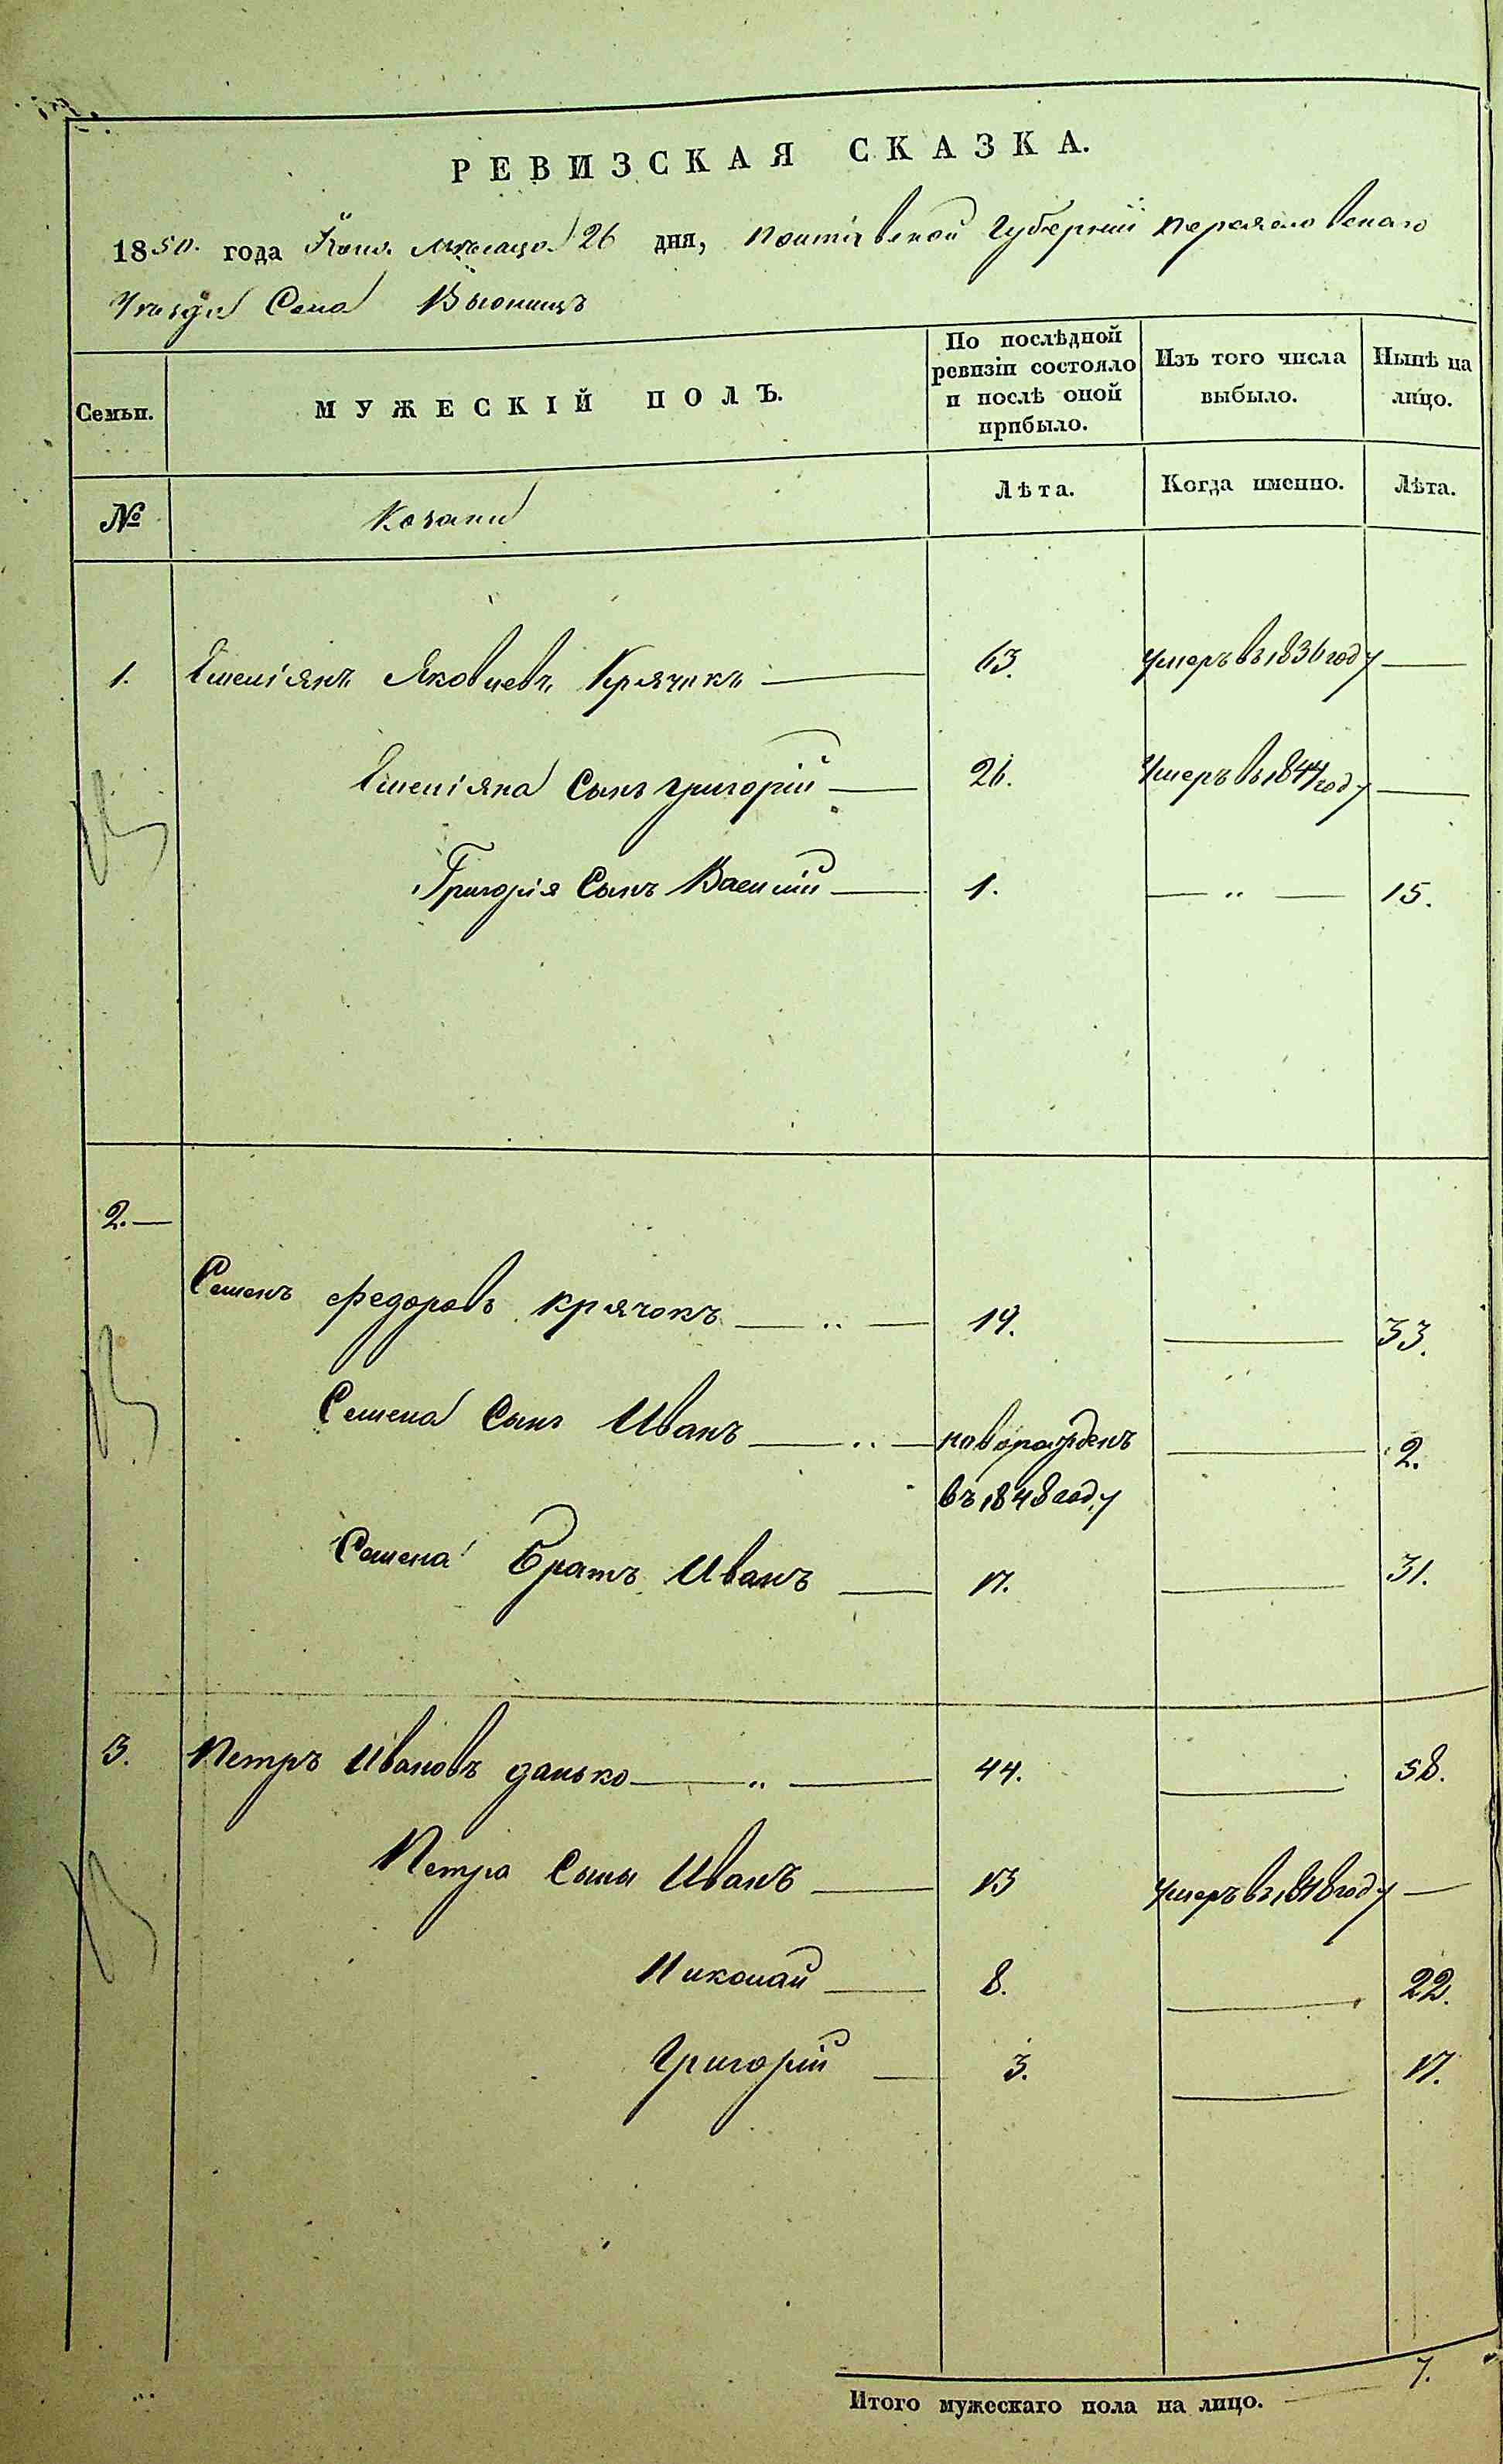 РЕВИЗСКАЯ СКАЗКА.
1850. года Юня мѣсяца 26 дня, Полтавской Губерніи Переяславскаго
Уезда Села Вьюнищъ
Семьи.
МУЖЕСКІЙ ПОЛЪ.
По послѣдной
ревизіи состояло
и послѣ оной
прибыло.
Изъ того числа
выбыло.
Нынѣ на
лицо.
№
Козаки
Лѣта.
Когда именно.
Лѣта.
1. Емеліянъ Яковлевъ Крячокъ 63. Умеръ въ 1836 году
Емеліяна Сынъ Григорій 26. Умеръ въ 1844 году
Григорія Сынъ Василій 1. 15.
2.
Семенъ Федоровъ Крячокъ 19. 33.
Семена Сынъ Иванъ новорожденъ 2.
въ 1848 году
Семена Братъ Иванъ 17. 31.
3. Петръ Ивановъ Данько 44. 58.
Петра Сыны Иванъ 13 Умеръ въ 1848 году
Николай 8. 22.
Григорій 3. 17.
Итого мужескаго пола на лицо. 7.